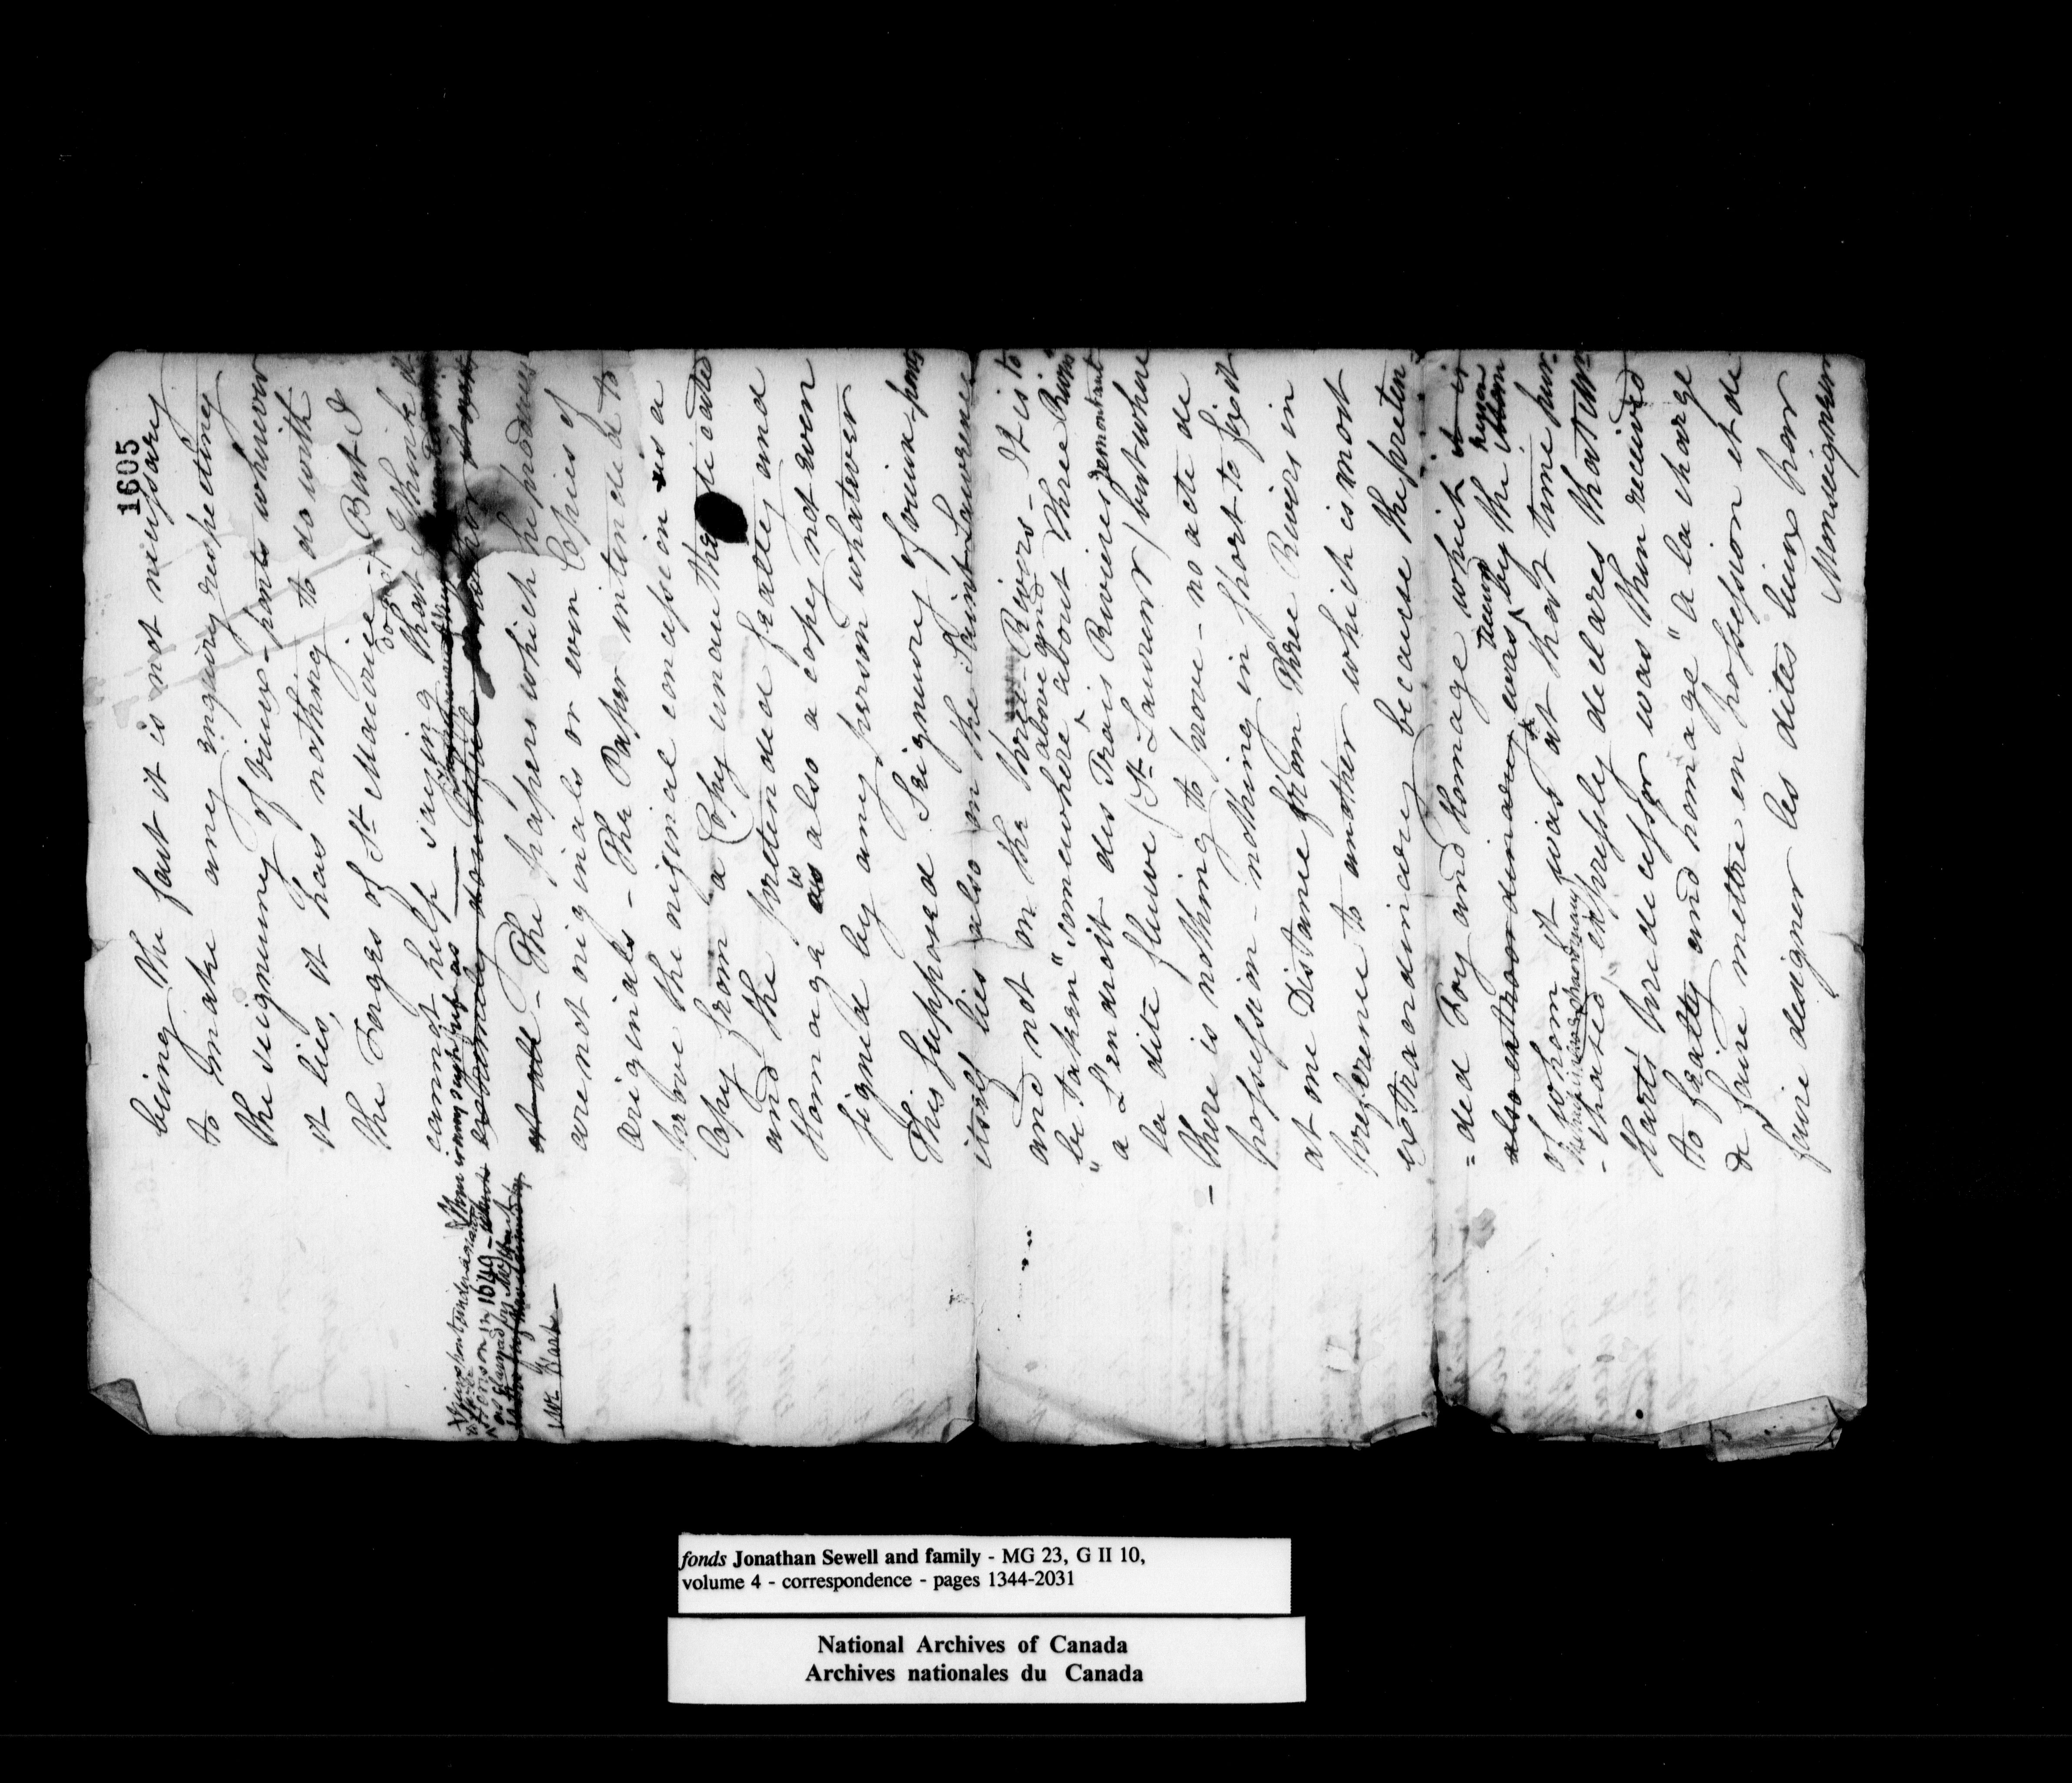 1605
being the fact it is not necessary
to make any enquiry respecting
the seigneury of vieux-ponts wherever
it lies, it has nothing to do with
the Forges of St. Maurice - But I
cannot help saying that I do not think
there was any such Fief as
at all - The papers which he produces
are not originals or even Copies of
originals - The Paper intended to
prove the original concession is a
Copy from a Copy unauthenticated
and the pretended fealty and
Homage is also a copy not even
signed by any person whatever
This supposed Seigneury of vieux-ponts
itself lies also on the Saint Lawrence
and not on the Three-Rivers - It is to
be taken "somewhere above and about Three Rivers"
"a L'endroit des Trois Rivieres demontant
la dite fleuve (St. Laurent) but where
- there is nothing to prove - no acte de
possession - nothing in short to fix it
at one Distance from Three Rivers in
preference to another which is most
extraordinary because the preten=
=ded Foy and Homage which
also extraordinary was by the
of whom it was at that time pur-
-chased expressly declares that Mr.
Harts Predecessor was then received
to fealty and homage "a la charge
de faire mettre en possession et de
faire designer les dites lieux par
Monseigneur
person in 1649
as claimed by Mr Hart
Mr Hart
fonds Jonathan Sewell and family - MG 23, G II 10,
volume 4 - correspondence - pages 1344-2031
National Archives of Canada
Archives nationales du Canada